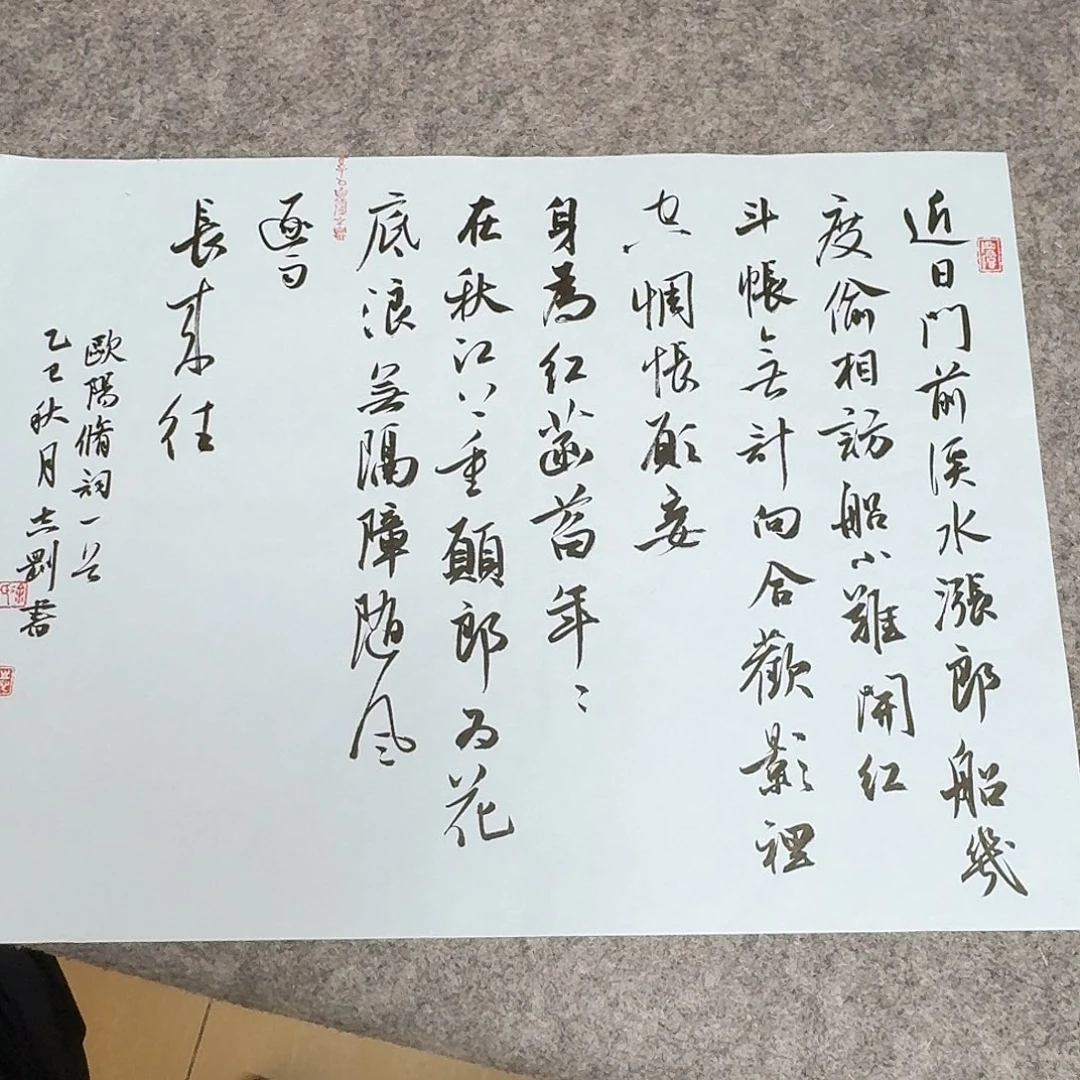 近日門前溪水漲郎船幾
度偷相訪船小難開紅
斗帳無計向合歡影裡
空惆悵願妾
身為紅菡萏年〻
在秋江上重願郎為花
底浪無隔障随風
逐雨
長來往
歐陽脩詞一首
乙巳秋月志剛書